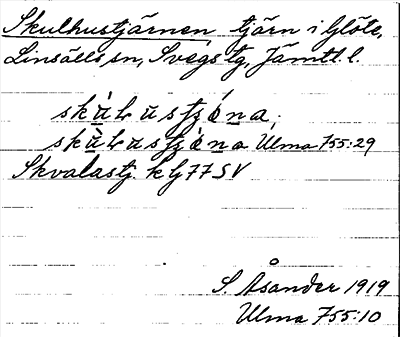 Skulhustjärnen, tjärn i Glöte,
Linsälls sn, Svegs tg, Jämtl. l.
Ulma 755:29
Skvalastj. k G 77 SV
S Åsander 1919
Ulma 755:10